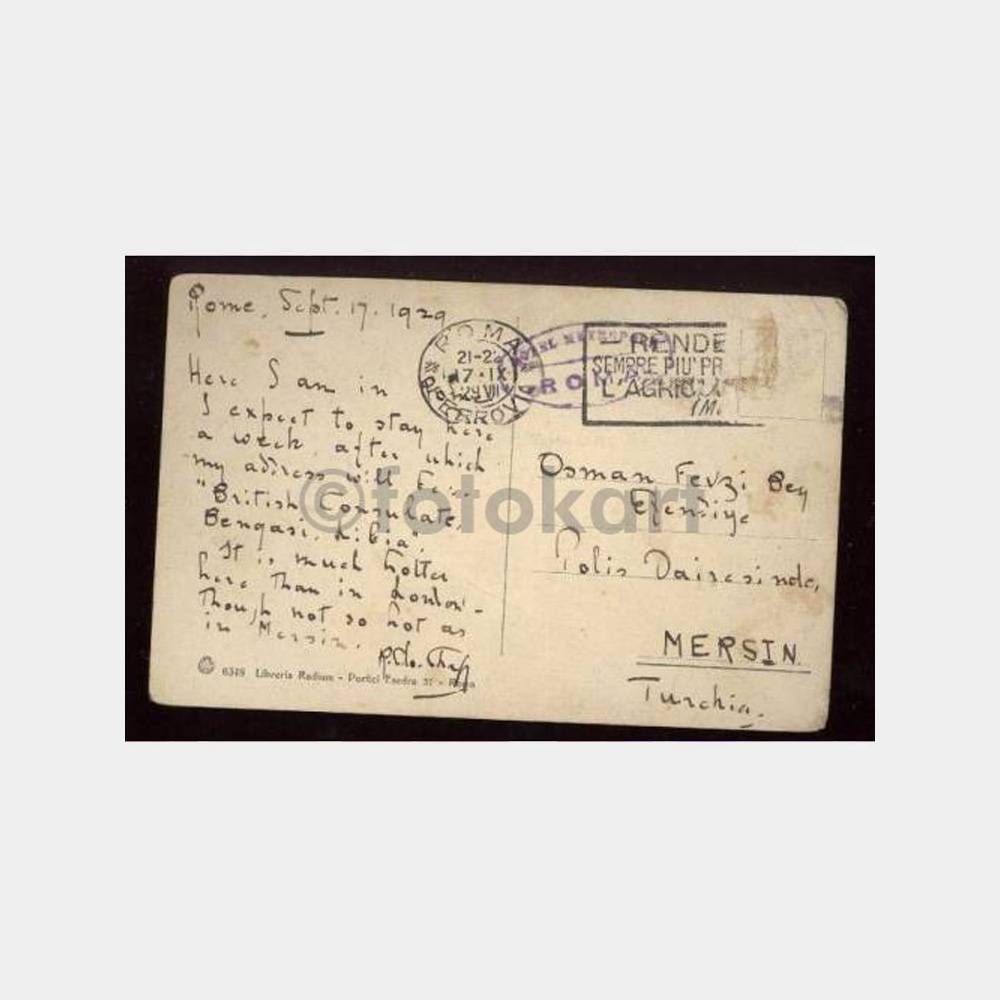 Rome, Sept. 17. 1929
Here I am in
I expect to stay here
a week, after which
my adress will be:
"British Consulate,
Bengasi, Libia".
It is much hotter
here than in London -
though not so hot as
in Mersin.
6348 Libreria Radium - Portici Esedra 51 - Roma
ROMA
21-2
17·IX
29 VII
FERROVIA
ROMA
RENDE
SEMPRE PIU' PR
L'AGRICOL
Osman Fevzi Bey
Efendiye
Polis Dairesinde,
MERSIN.
Turchia.
©fotokart